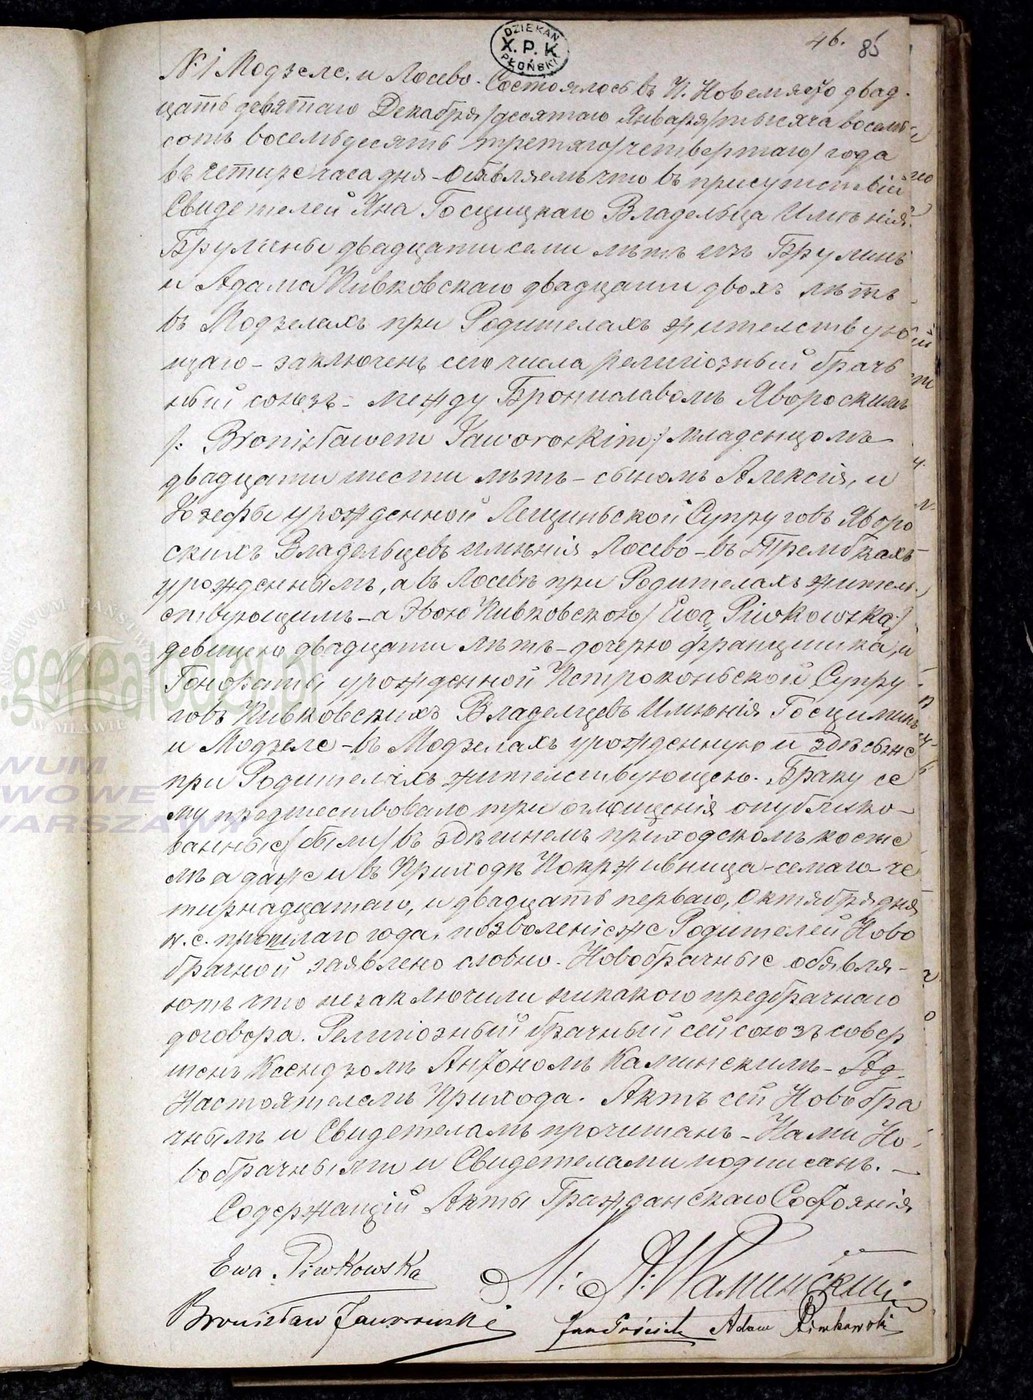 46. 85
DZIEKAN
X. P. K
PŁOŃSKI
N 1 Модзеле. и Лосево. Состоялось въ Н. двад-
цать девятаго Декабря /десятаго Января/ тысяча восемь
сотъ восемьдесятъ третяго /четвертаго/ года
въ четире часа дня - Объвляемъ что въ присутствій
Свидетелей Яна Госцицкаго Владельца Имѣнія
Брулины двадцати семи лѣтъ изъ Брулинъ
и Адама Пивковскаго двадцати двохъ лѣтъ
въ Модзелахъ при Родителахъ жителствую
щаго - заключенъ сего числа религіозный брачъ
ный союзъ - между Брониславомъ Явороскимъ
/: Bronisławem Jaworoskim :/ младенцомъ
двадцати шести лѣтъ - сыномъ Алексія, и
Юзефы урожденной Лещиньской Супруговъ Яворо
скихъ Владельцевъ имѣнія Лосево - въ Трембкахъ
урожденнымъ, а въ Лосевѣ при Родителахъ жител
ствующимъ - а Эвою Пивковскою / Ewą Piwkowską /
девицою двадцати лѣтъ - дочерю Францишка, и
Гонораты урожденной Петроконьской Супру
говъ Пивковскихъ Владелцевъ Имѣнія
и Модзеле - въ Модзелахъ урожденную и здѣсь же
при Родителахъ жителствующею. Браку се
му предшествовало три оглощенія опублико-
ванные /были/ въ здѣшнемъ приходскомъ косте
лѣ а даже и въ Приходѣ Покрживница - семаго - че
тирнадцатаго, и двадцать перваго, Октября дня
н. с. прошлаго года. позволеніе же Родителей Ново
брачной заявлено словно. Новобрачные объявля-
ютъ что незаключили никакого предбрачнаго
договора. Религіозный брачный сей союзъ совер
шенъ Ксендзомъ Антономъ Каминскимъ - Ад.
Настоятелемъ Прихода. Актъ сей Новобра
чнымъ и Свидетеламъ прочитанъ - Нами Но-
вобрачными и Свидетелами подписанъ. -
Содержащій Акты Гражданскаго Состоянія
Ewa Piwkowska
Bronisław Jaworoski
Jan Gościcki Adam Piwkowski
.genealodzy.pl